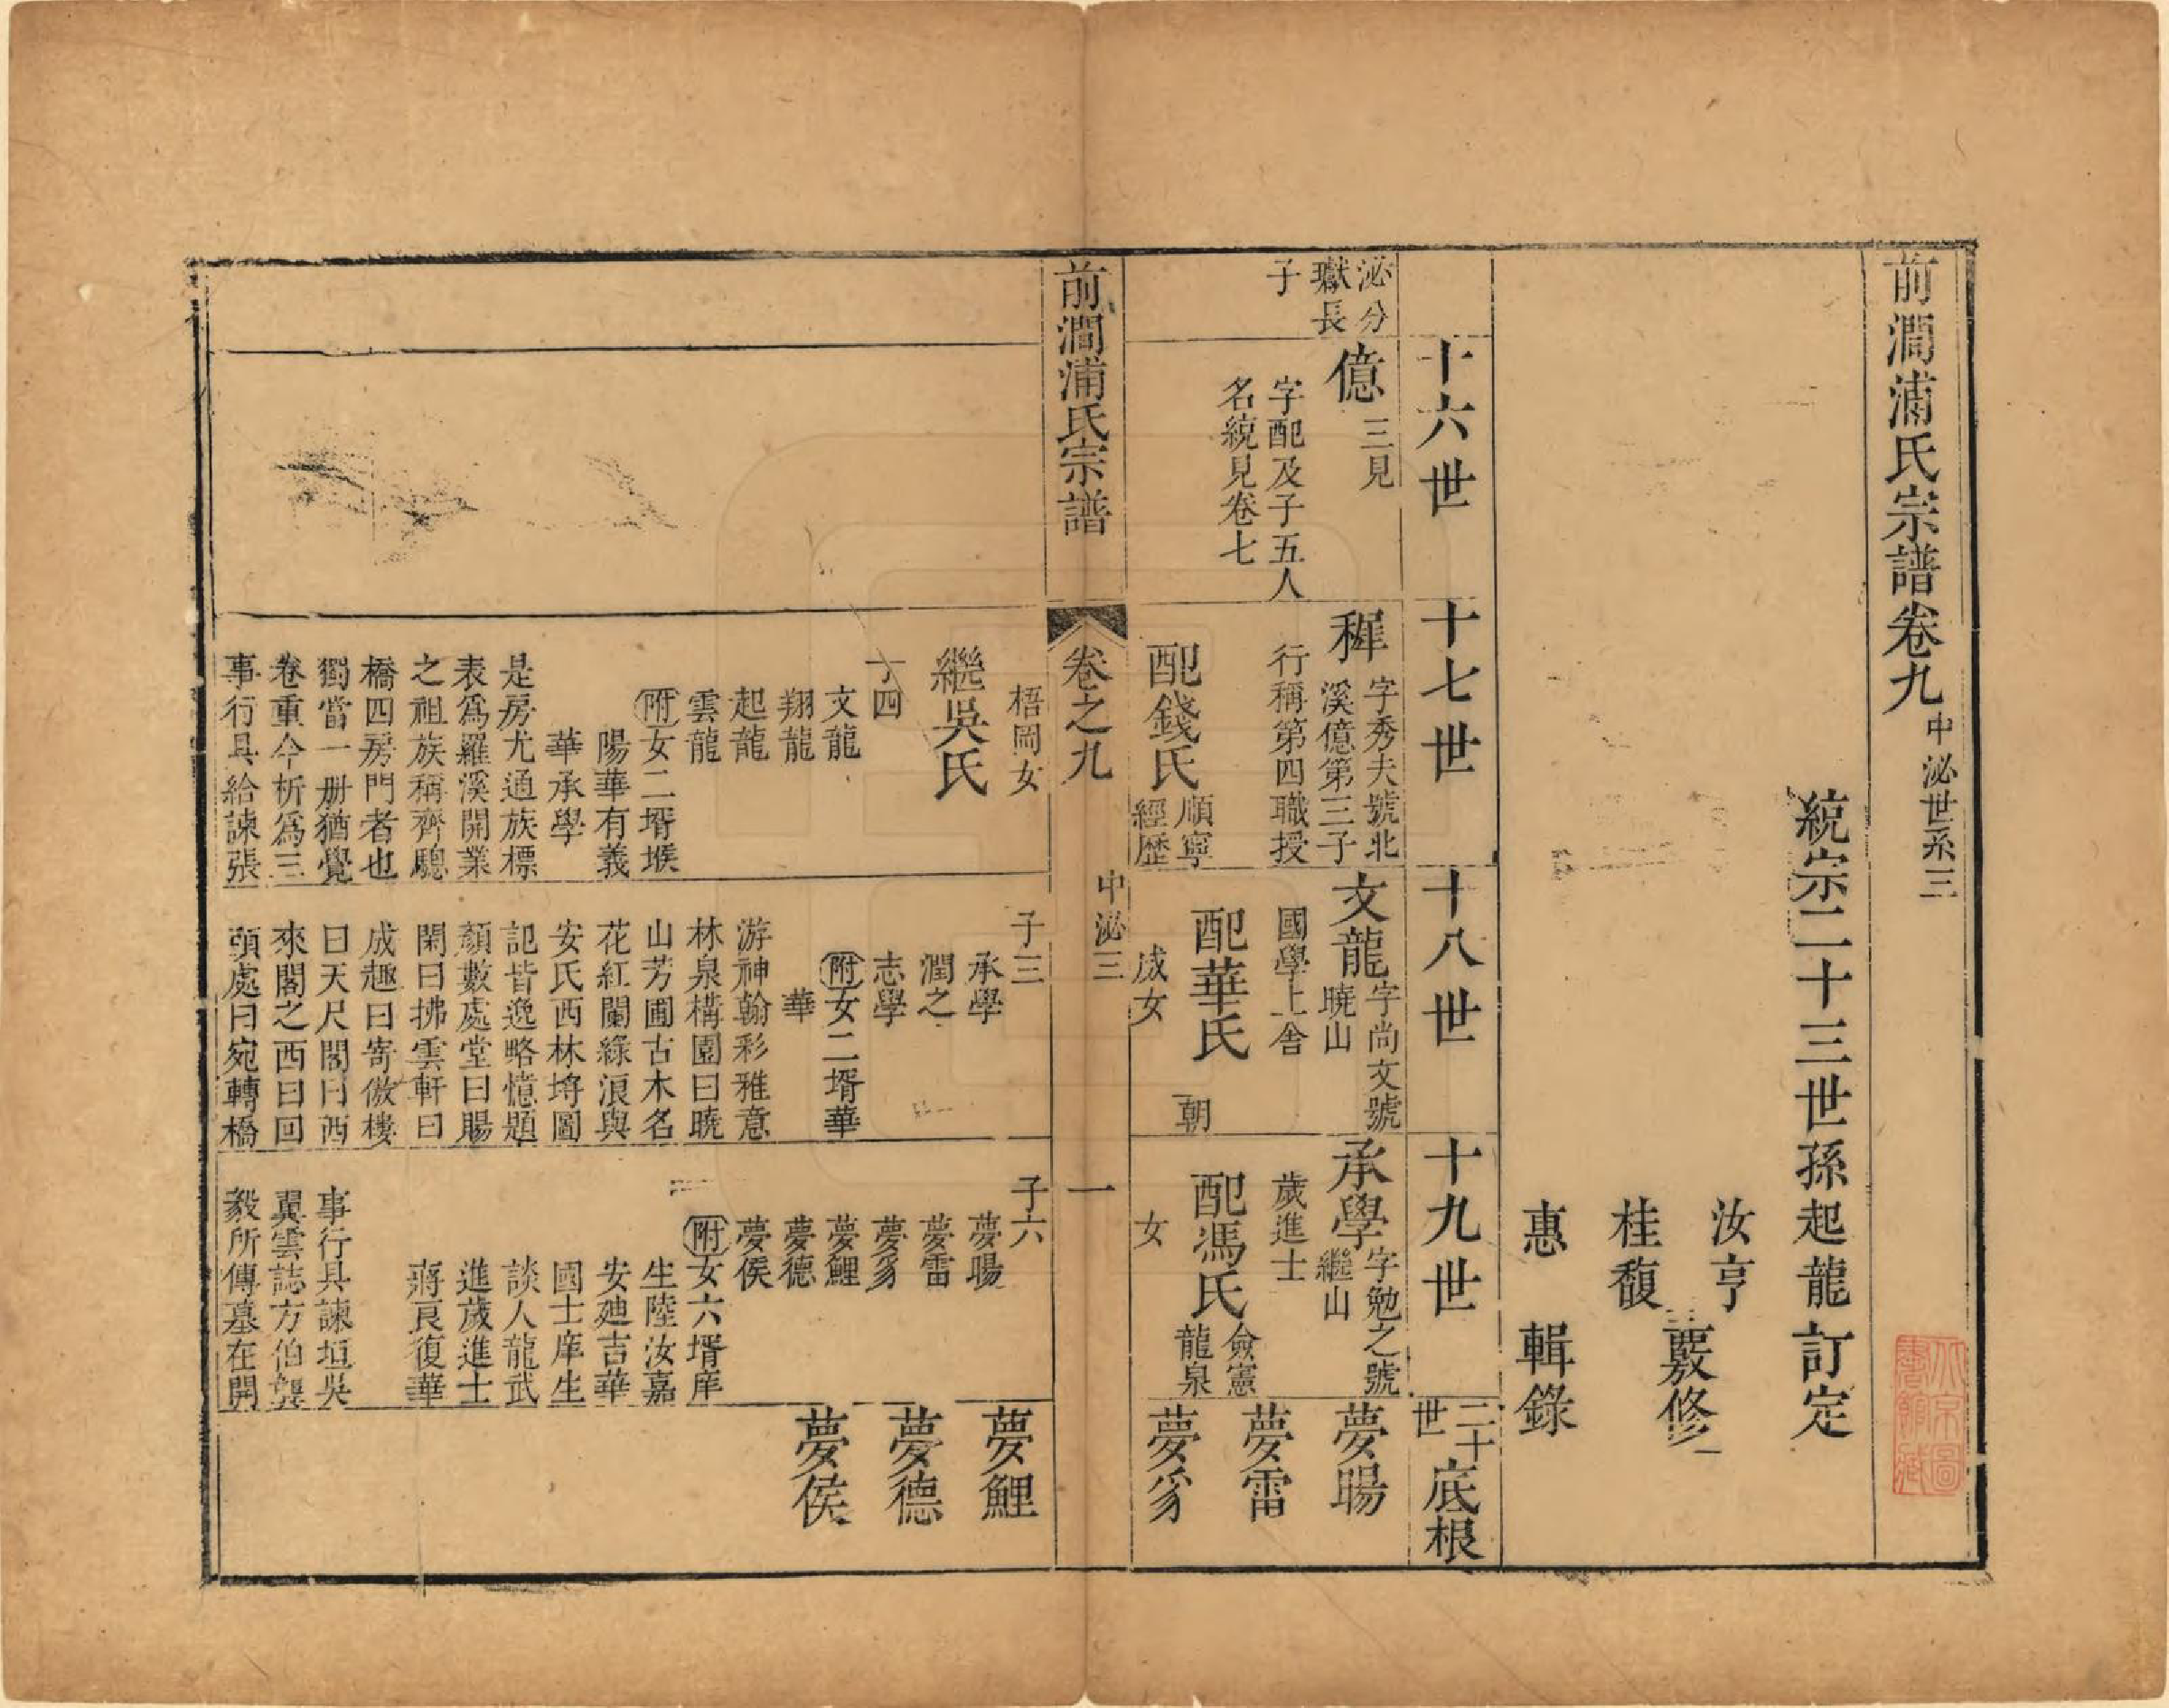 前澗浦氏宗譜卷九
中泌世系三
統宗二十三世孫起龍訂定
汝亨
桂馥
覈修
惠 輯錄
十六世
十七世
十八世
十九世
二十世
底根
泌分
獻長
子
億
三見
字配及子五人
名統見卷七
穉
字秀夫號北
溪億第三子
行稱第四職授
順寧
經歷
配錢氏
文龍
字尚文號
曉山
國學上舍
配華氏
朝
成女
承學
字勉之號
繼山
歲進士
配馮氏
僉憲
龍泉
女
夢暘
夢雷
夢豸
前澗浦氏宗譜
卷之九
中泌三
一
梧岡女
繼吳氏
子四
文龍
翔龍
起龍
雲龍
附女二壻堠
陽華有義
華承學
是房尤通族標
表爲羅溪開業
之祖族稱齊驄
橋四房門者也
獨當一册猶覺
卷重今析爲三
事行具給諫張
子三
承學
潤之
志學
附女二壻華
華
游神翰彩雅意
林泉構園曰曉
山芳圃古木名
花紅闌綠浪與
安氏西林埒圖
記皆逸略憶題
顏數處堂曰賜
閑曰拂雲軒曰
成趣曰寄傲樓
曰天尺閣曰西
來閣之西曰回
頭處曰宛轉橋
子六
夢暘
夢雷
夢豸
夢鯉
夢德
夢侯
附女六壻庠
生陸汝嘉
安廸吉華
國士庠生
談人龍武
進歲進士
蔣良復華
事行具諫垣吳
翼雲誌方伯龔
毅所傳墓在開
夢鯉
夢德
夢侯